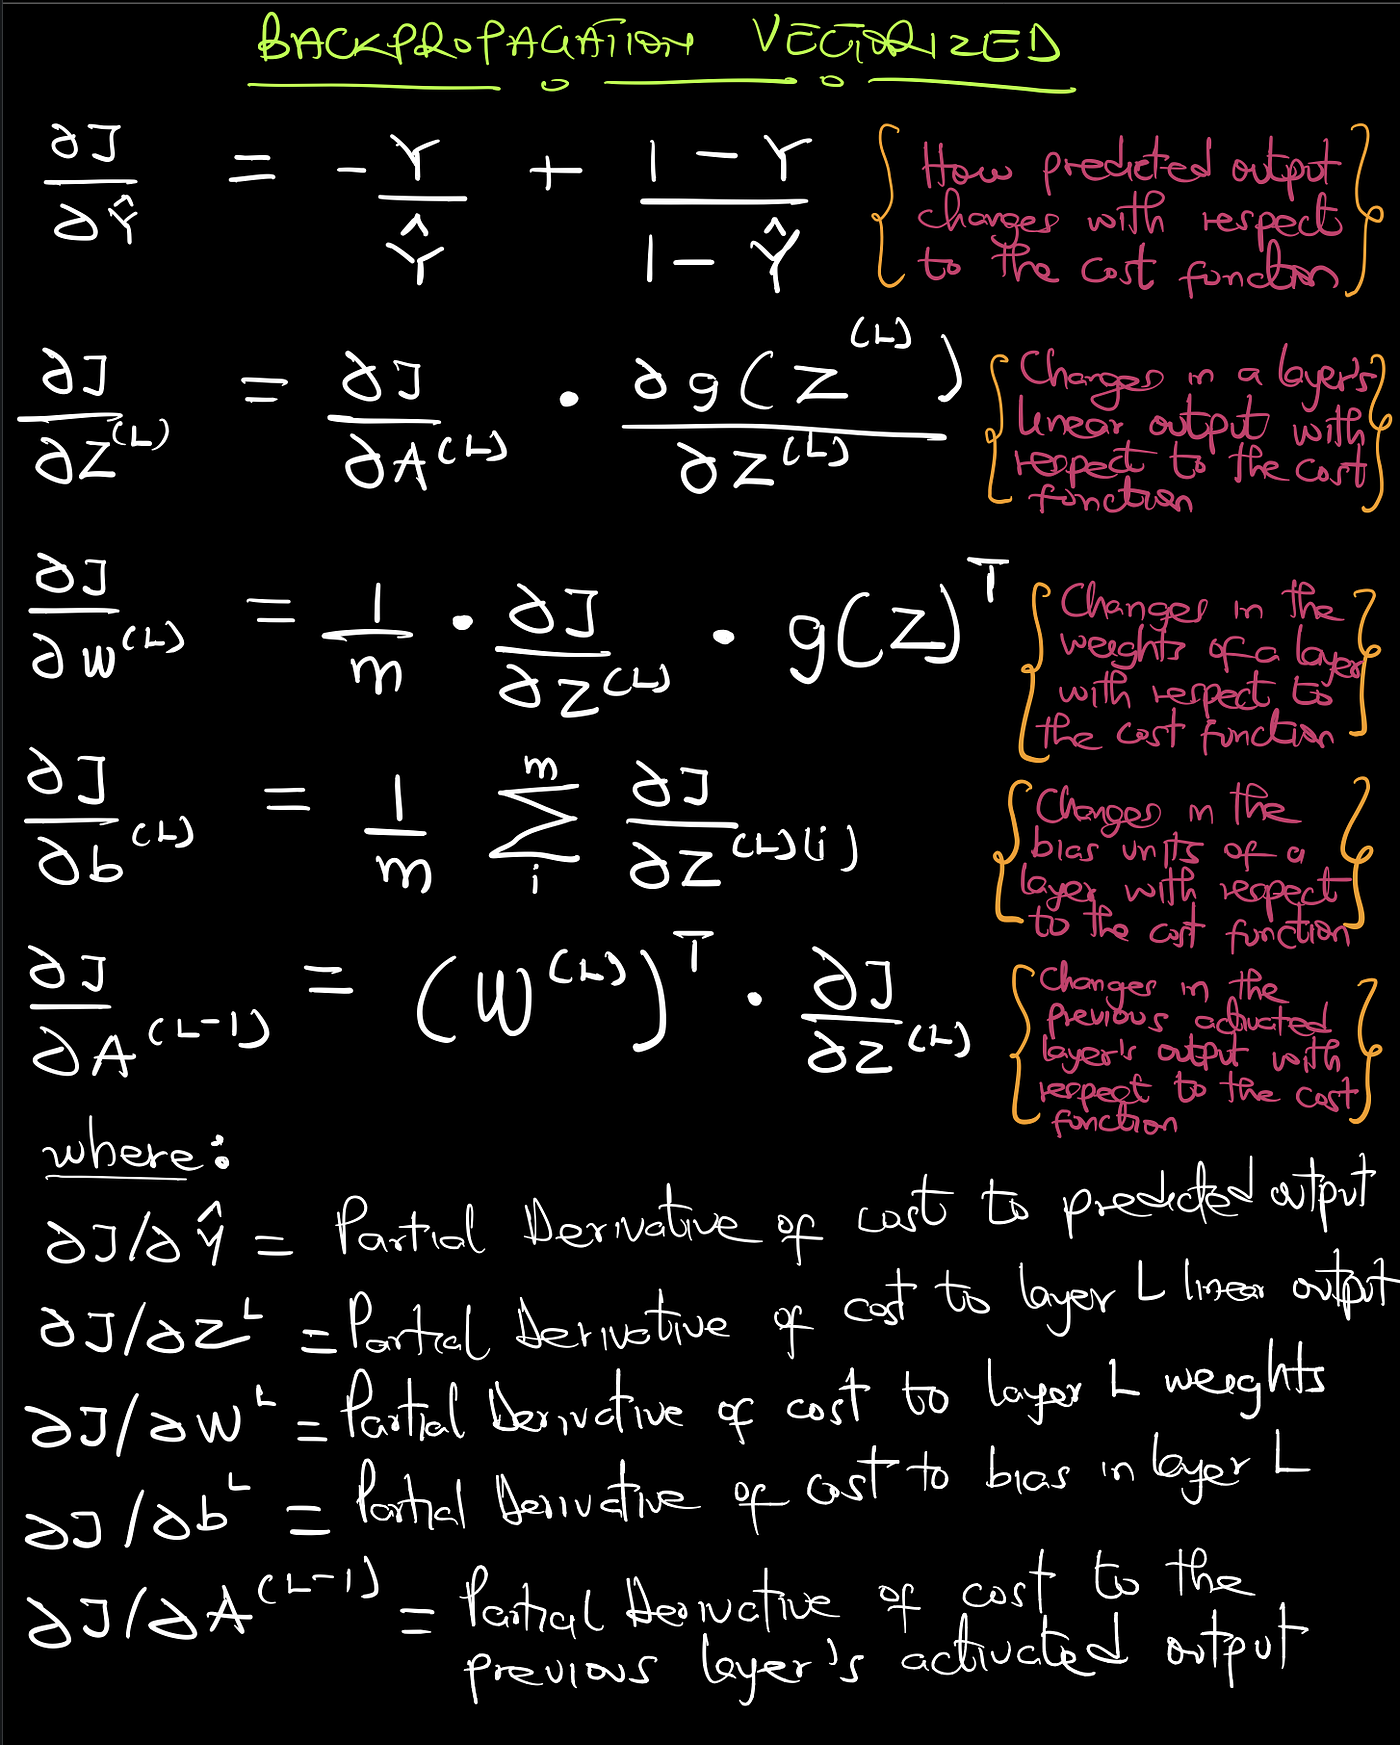 BACKPROPAGATION VECTORIZED
∂J/∂Ŷ = -Y/Ŷ + (1-Y)/(1-Ŷ)
{How predicted output
changes with respect
to the cost function}
∂J/∂Z^(L) = ∂J/∂A^(L) · ∂g(Z^(L))/∂Z^(L)
{Changes in a layer's
linear output with
respect to the cost
function}
∂J/∂W^(L) = 1/m · ∂J/∂Z^(L) · g(Z)^T
{Changes in the
weights of a layer
with respect to
the cost function}
∂J/∂b^(L) = 1/m Σ_i^m ∂J/∂Z^(L)(i)
{Changes in the
bias units of a
layer with respect
to the cost function}
∂J/∂A^(L-1) = (W^(L))^T · ∂J/∂Z^(L)
{Changes in the
previous activated
layer's output with
respect to the cost
function}
where:
∂J/∂Ŷ = Partial Derivative of cost to predicted output
∂J/∂Z^L = Partial Derivative of cost to layer L linear output
∂J/∂W^L = Partial Derivative of cost to layer L weights
∂J/∂b^L = Partial Derivative of cost to bias in layer L
∂J/∂A^(L-1) = Partial Derivative of cost to the
previous layer's activated output